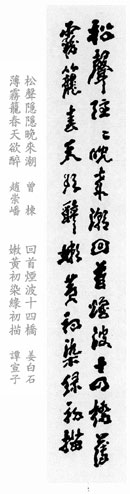 松聲隱〻晚来潮回首煙波十四橋薄
霧籠春天欲醉嫩黃初染綠初描
松聲隱隱晚來潮 曾棟
回首煙波十四橋 姜白石
薄霧籠春天欲醉 趙崇嶓
嫩黃初染綠初描 譚宣子